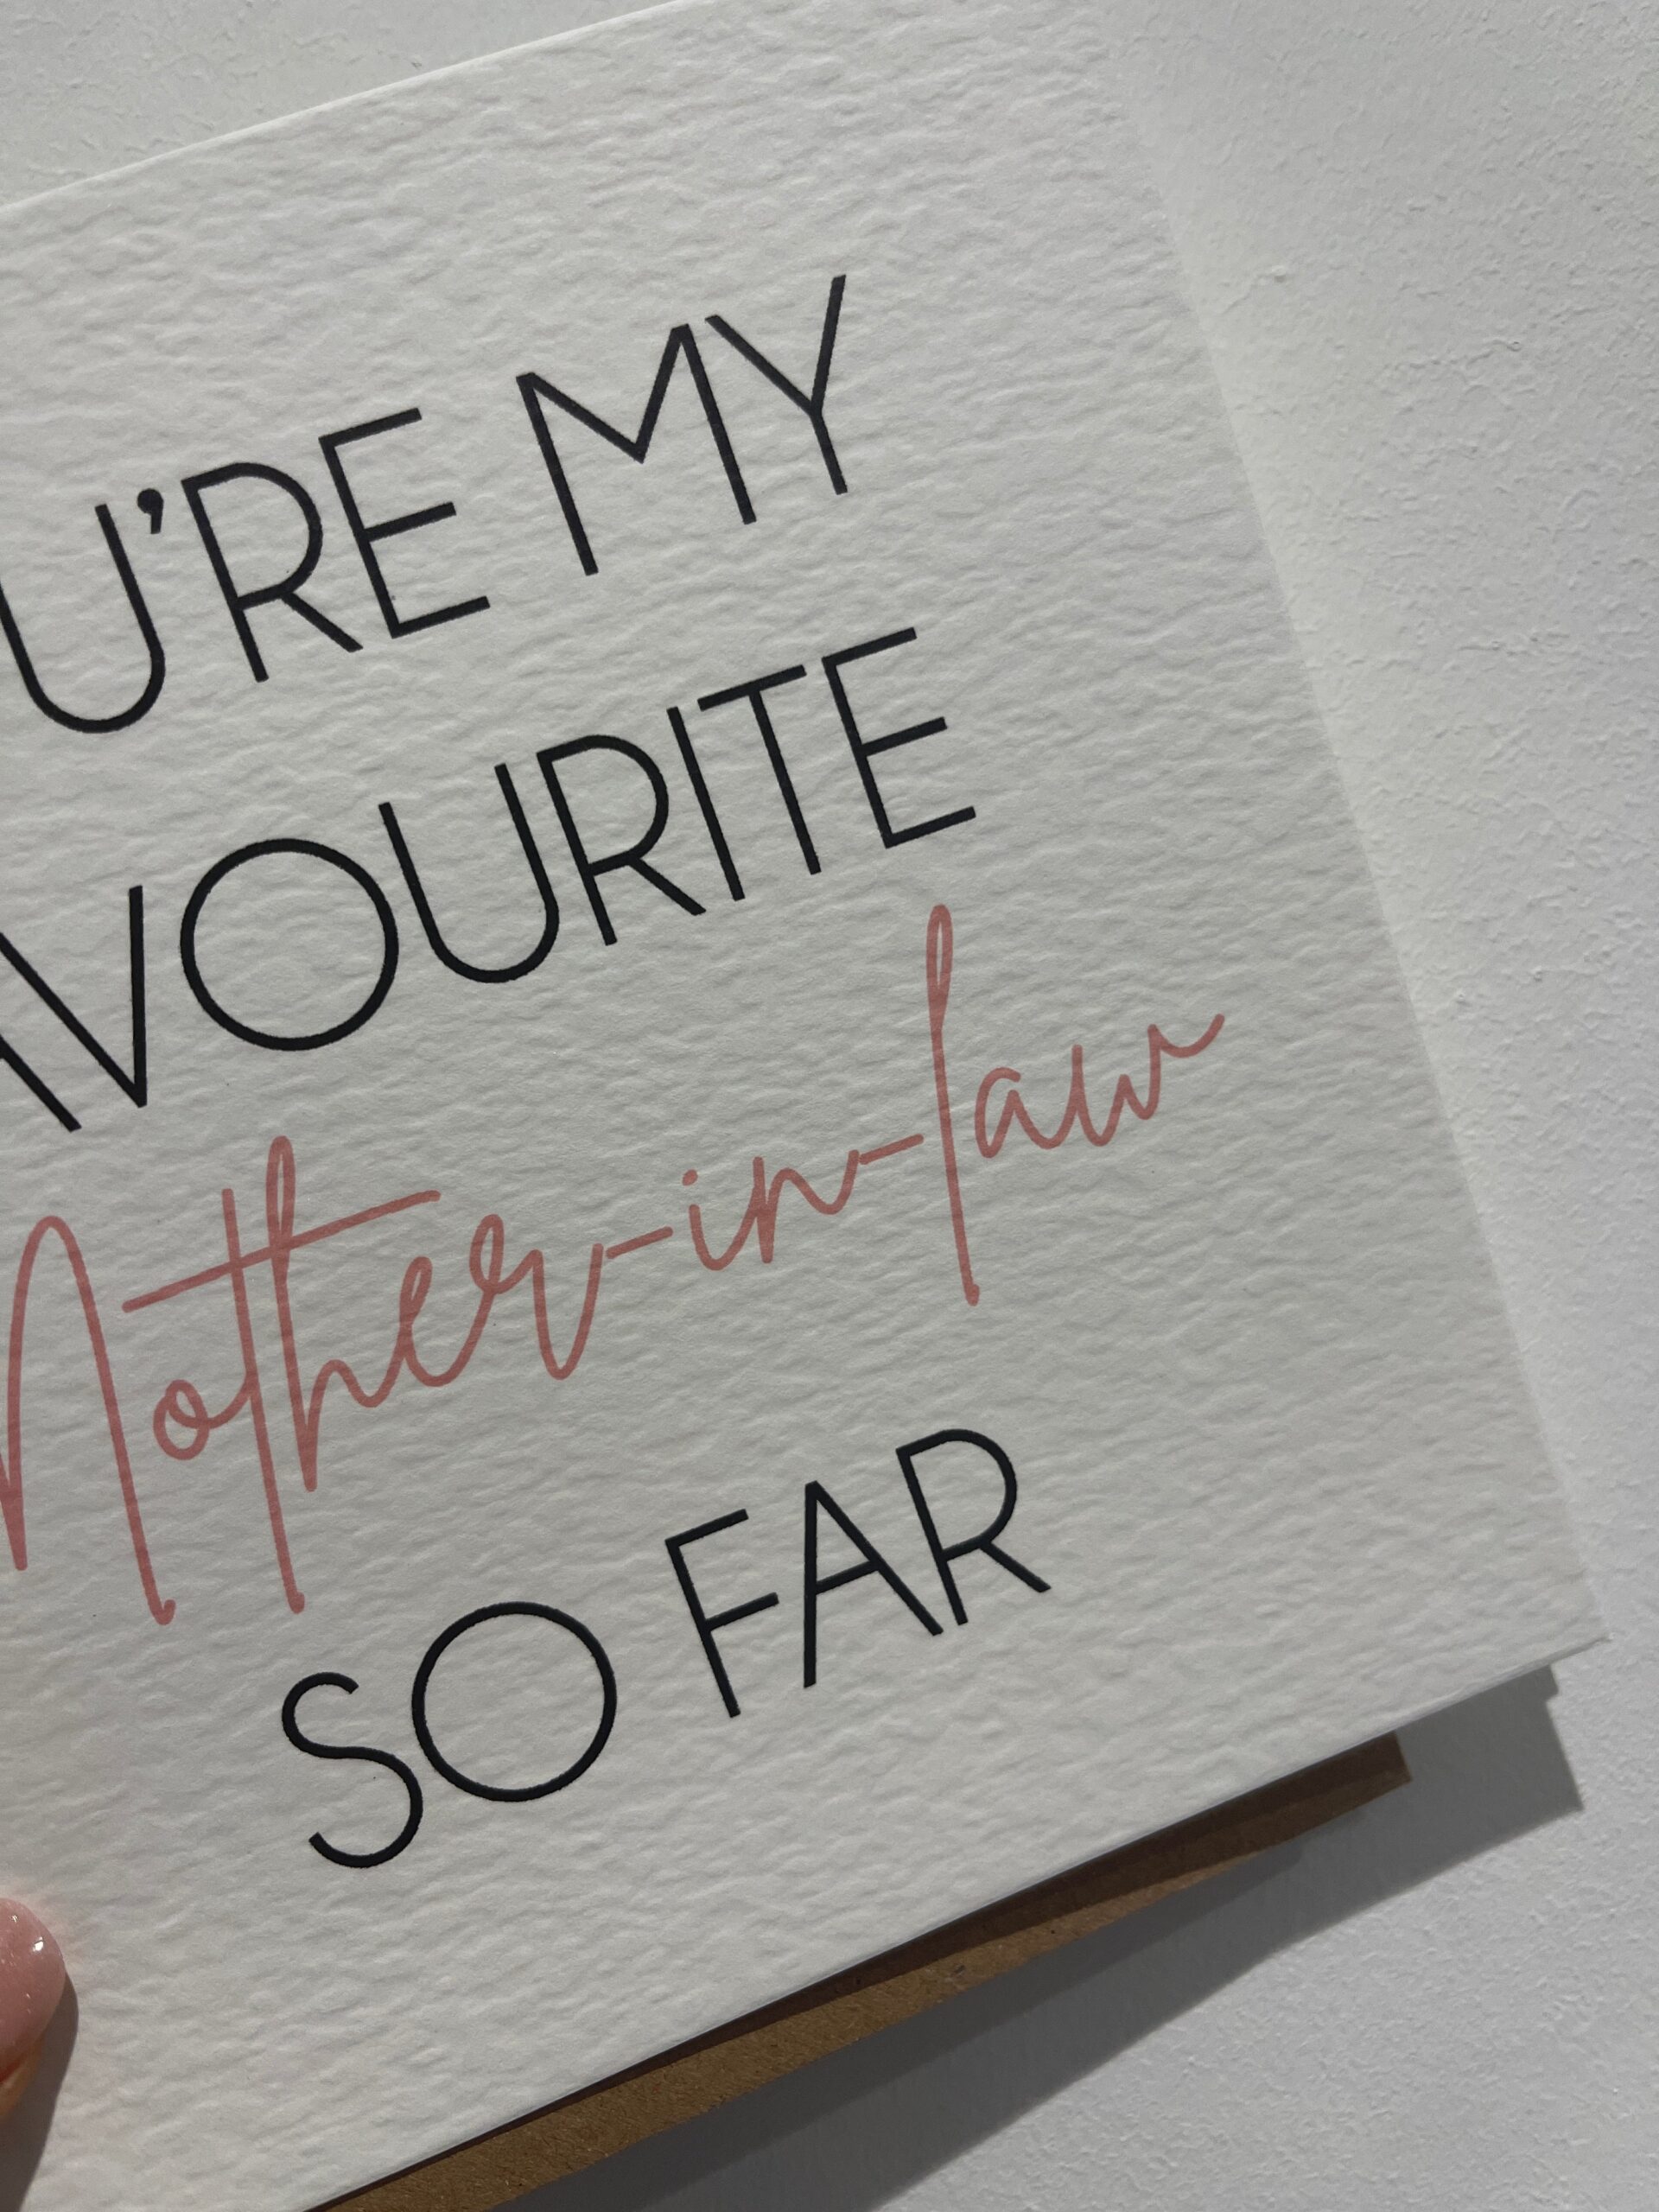 U'RE MY
AVOURITE
Mother-in-law
SO FAR